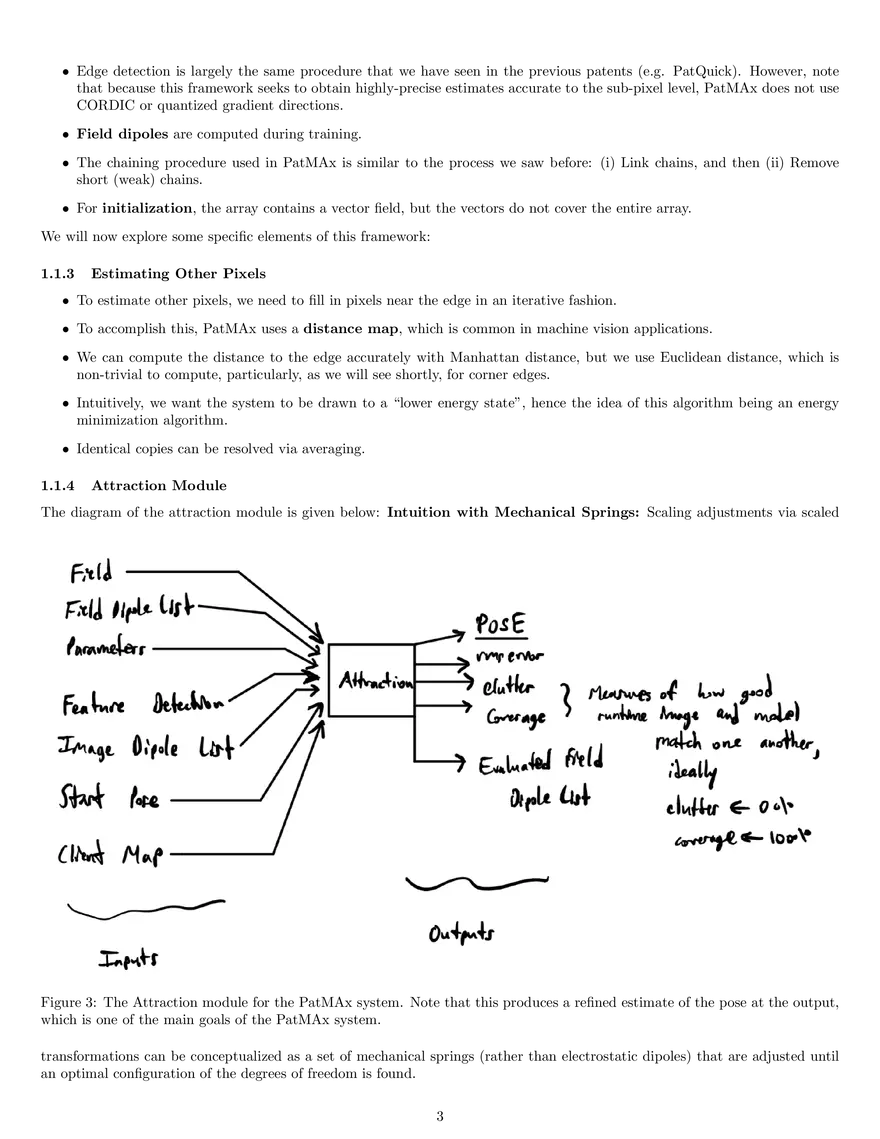 • Edge detection is largely the same procedure that we have seen in the previous patents (e.g. PatQuick). However, note
that because this framework seeks to obtain highly-precise estimates accurate to the sub-pixel level, PatMAx does not use
CORDIC or quantized gradient directions.
• Field dipoles are computed during training.
• The chaining procedure used in PatMAx is similar to the process we saw before: (i) Link chains, and then (ii) Remove
short (weak) chains.
• For initialization, the array contains a vector field, but the vectors do not cover the entire array.
We will now explore some specific elements of this framework:
1.1.3 Estimating Other Pixels
• To estimate other pixels, we need to fill in pixels near the edge in an iterative fashion.
• To accomplish this, PatMAx uses a distance map, which is common in machine vision applications.
• We can compute the distance to the edge accurately with Manhattan distance, but we use Euclidean distance, which is
non-trivial to compute, particularly, as we will see shortly, for corner edges.
• Intuitively, we want the system to be drawn to a “lower energy state”, hence the idea of this algorithm being an energy
minimization algorithm.
• Identical copies can be resolved via averaging.
1.1.4 Attraction Module
The diagram of the attraction module is given below: Intuition with Mechanical Springs: Scaling adjustments via scaled
Field
Field Dipole List
Parameters
Feature Detection
Image Dipole List
Start Pose
Client Map
Inputs
Attraction
POSE
rmp error
Clutter
Coverage
Evaluated Field
Dipole List
Outputs
Measures of how good
runtime image and model
match one another,
ideally
clutter ← 0%
coverage ← 100%
Figure 3: The Attraction module for the PatMAx system. Note that this produces a refined estimate of the pose at the output,
which is one of the main goals of the PatMAx system.
transformations can be conceptualized as a set of mechanical springs (rather than electrostatic dipoles) that are adjusted until
an optimal configuration of the degrees of freedom is found.
3